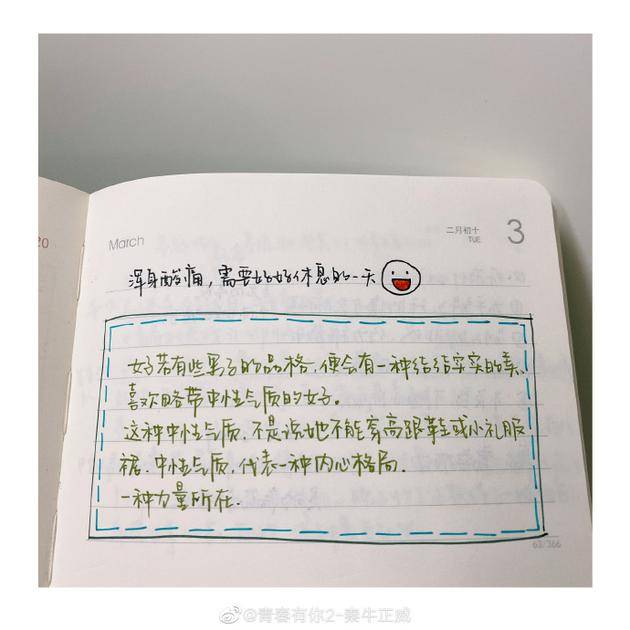 20
March
二月初十
TUE
3
浑身酸痛，需要好好休息的一天
女子若有些男子的品格，便会有一种结结实实的美、
喜欢略带中性气质的女子。
这种中性气质，不是说她不能穿高跟鞋或小礼服
裙．中性气质，代表一种内心格局．
一种力量所在．
63/366
@青春有你2-秦牛正威